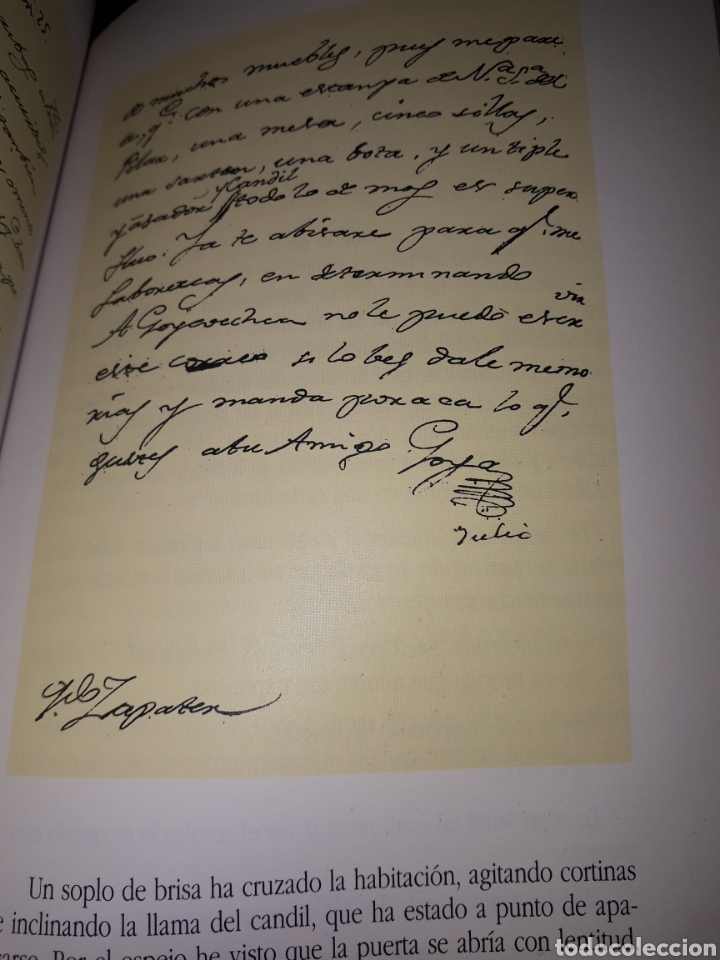 de muchos muebles, pues me pare
ce, q.e con una estampa de N.a S.a del
Pilar, una mesa, cinco sillas,
una sarten, una bota, y un tiple
y asador y Candil todo lo de mas es super
fluo. Ya te abisare para q.e me
en determinando
A Goyeechea no le puedo escri vir
este correo si lo bes dale memo
rias y manda por aca lo q.e
gustes a tu Amigo Goya
Julio
Zapater
Un soplo de brisa ha cruzado la habitación, agitando cortinas
e inclinando la llama del candil, que ha estado a punto de apa-
garse. Por el espejo he visto que la puerta se abría con lentitud,
todocoleccion